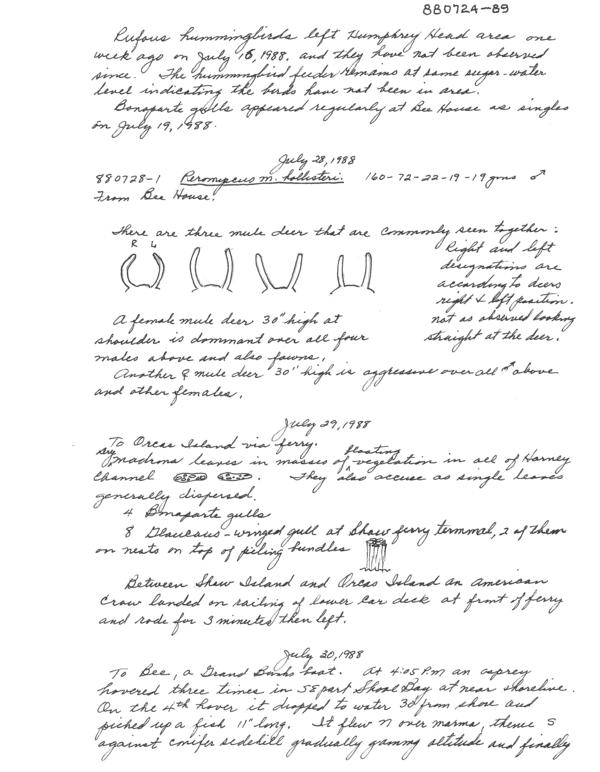 880724-89
Rufous hummingbirds left Humphrey Head area one
week ago on July 16, 1988, and they have not been observed
since. The hummingbird feeder remains at same sugar-water
level indicating the birds have not been in area.
Bonaparte gulls appeared regularly at Bee House as singles
on July 19, 1988.
July 28, 1988
880728-1 Peromyscus m. hollisteri. 160-72-22-19-19gms ♂
From Bee House.
There are three mule deer that are commonly seen together:
R L
Right and left
designations are
according to deers
right & left position.
not as observed looking
straight at the deer.
A female mule deer 30" high at
shoulder is dominant over all four
males above and also fawns.
Another ♀ mule deer 30" high is aggressive over all ♂ above
and other females.
July 29, 1988
To Orcas Island via ferry.
Dry madrona leaves in masses of floating vegetation in all of Harney
Channel. They also accuse as single leaves
generally dispersed.
4 Bonaparte gulls
8 Glaucous-winged gull at Shaw ferry terminal, 2 of them
on nests on top of piling bundles
Between Shaw Island and Orcas Island an American
Crow landed on railing of lower car deck at front of ferry
and rode for 3 minutes then left.
July 30, 1988
To Bee, a Grand Banks boat. At 4:05 P.M an osprey
hovered three times in SE part Shoal Bay at near shoreline.
On the 4th hover it dropped to water 30' from shore and
picked up a fish 11" long. It flew N over marina, thence S
against conifer sidehill gradually gaining altitude and finally